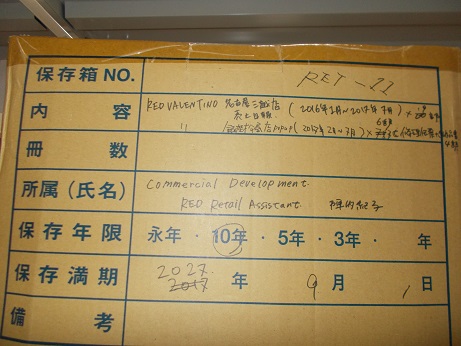 保存箱NO. RET-11
内容 RED VALENTINO 名古屋三越店 (2016年1月~2017年7月)
売上日報
〃 POPUP (2017年2月~3月)
冊数
所属(氏名) Commercial Development.
RED Retail Assistant
保存年限 永年・10年・5年・3年・ 年
保存満期 2027 2017 年 9月 1日
備考